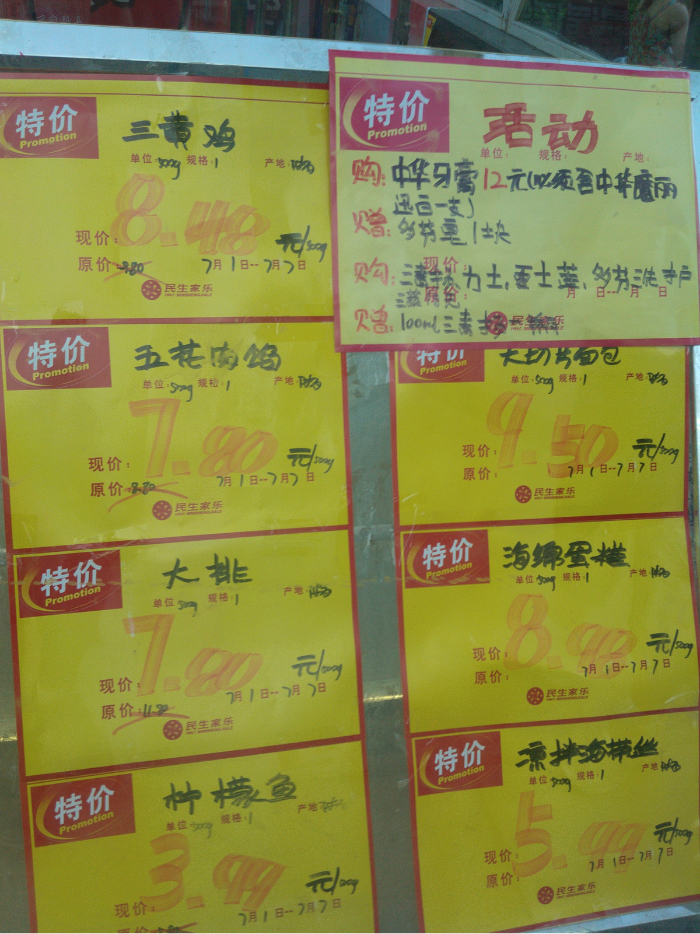 特价
Promotion
三黄鸡
单位:500g 规格:1 产地:
现价: 8.48 元/500g
原价:9.80 7月1日--7月7日
民生家乐
特价
Promotion
五花肉
单位:500g 规格:1 产地:
现价: 7.80 元/500g
原价:8.80 7月1日--7月7日
民生家乐
特价
Promotion
大排
单位:500g 规格:1 产地:
现价: 7.80 元/500g
原价:11.80 7月1日--7月7日
民生家乐
特价
Promotion
柠檬鱼
单位:500g 规格:1 产地:
现价: 3.99 元/
原价: 7月1日--7月7日
民生家乐
特价
Promotion
活动
单位: 规格: 产地:
购: 中华牙膏12元(必须含中华魔丽
迅白一支)
赠: 多芬皂1块
购: 力士,
赠: 100ml
特价
Promotion
面包
单位:500g 规格:1 产地:
现价: 9.50 元/500g
原价: 7月1日--7月7日
民生家乐
特价
Promotion
海绵蛋糕
单位:500g 规格:1 产地:
现价: 8.98 元/500g
原价: 7月1日--7月7日
民生家乐
特价
Promotion
凉拌海带丝
单位:500g 规格:1 产地:
现价: 5.99 元/500g
原价: 7月1日--7月7日
民生家乐